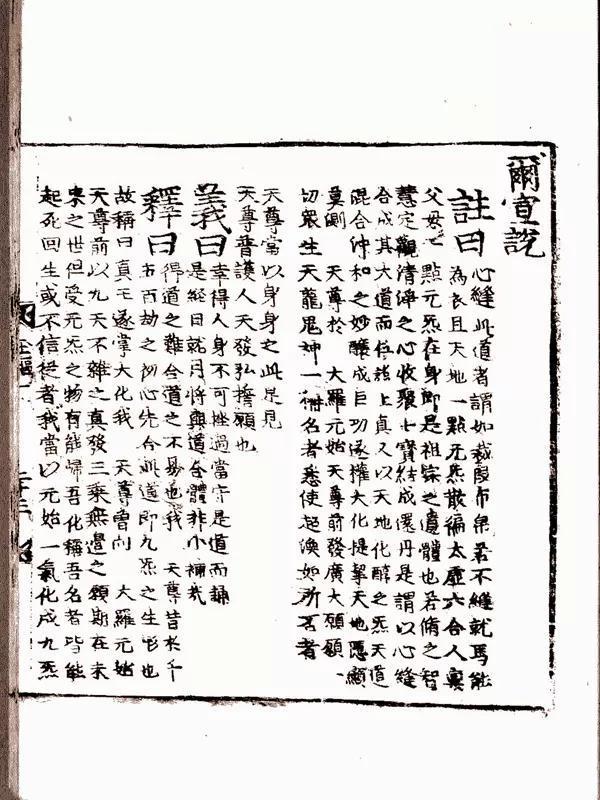 爾宣說
註曰
心縫此道者謂如裁段布帛若不縫就焉能
為衣且天地一點元炁散徧太虛六合人稟
父母一點元炁在身即是祖宗之遺體也若脩之智
慧定觀清淨之心收聚七寶結成還丹是謂以心縫
合成其大道而位茲上真又以天地化醇之炁天道
混合沖和之妙釀成巨功遂權大化提挈天地應顯
莫測 天尊於 大羅元始天尊前發廣大願願一
切眾生天龍鬼神一稱名者悉使超渙如所否者
天尊當以身身之此足見
天尊普護人天發弘擔願也
義曰
幸得人身不可挫過當守是道而誦
是經日就月將與道全體非小補哉
釋曰
得道之難合道之不易也我 天尊昔於千
五百劫之初心先合此道即九炁之生也
故稱曰真王遂掌大化我 天尊曾向 大羅元始
天尊前以九天不雜之真發三乘無邊之願斯在未
來之世但受元炁之物有能歸吾化稱吾名者皆能
起死回生或不信從者我當以元始一氣化成九炁